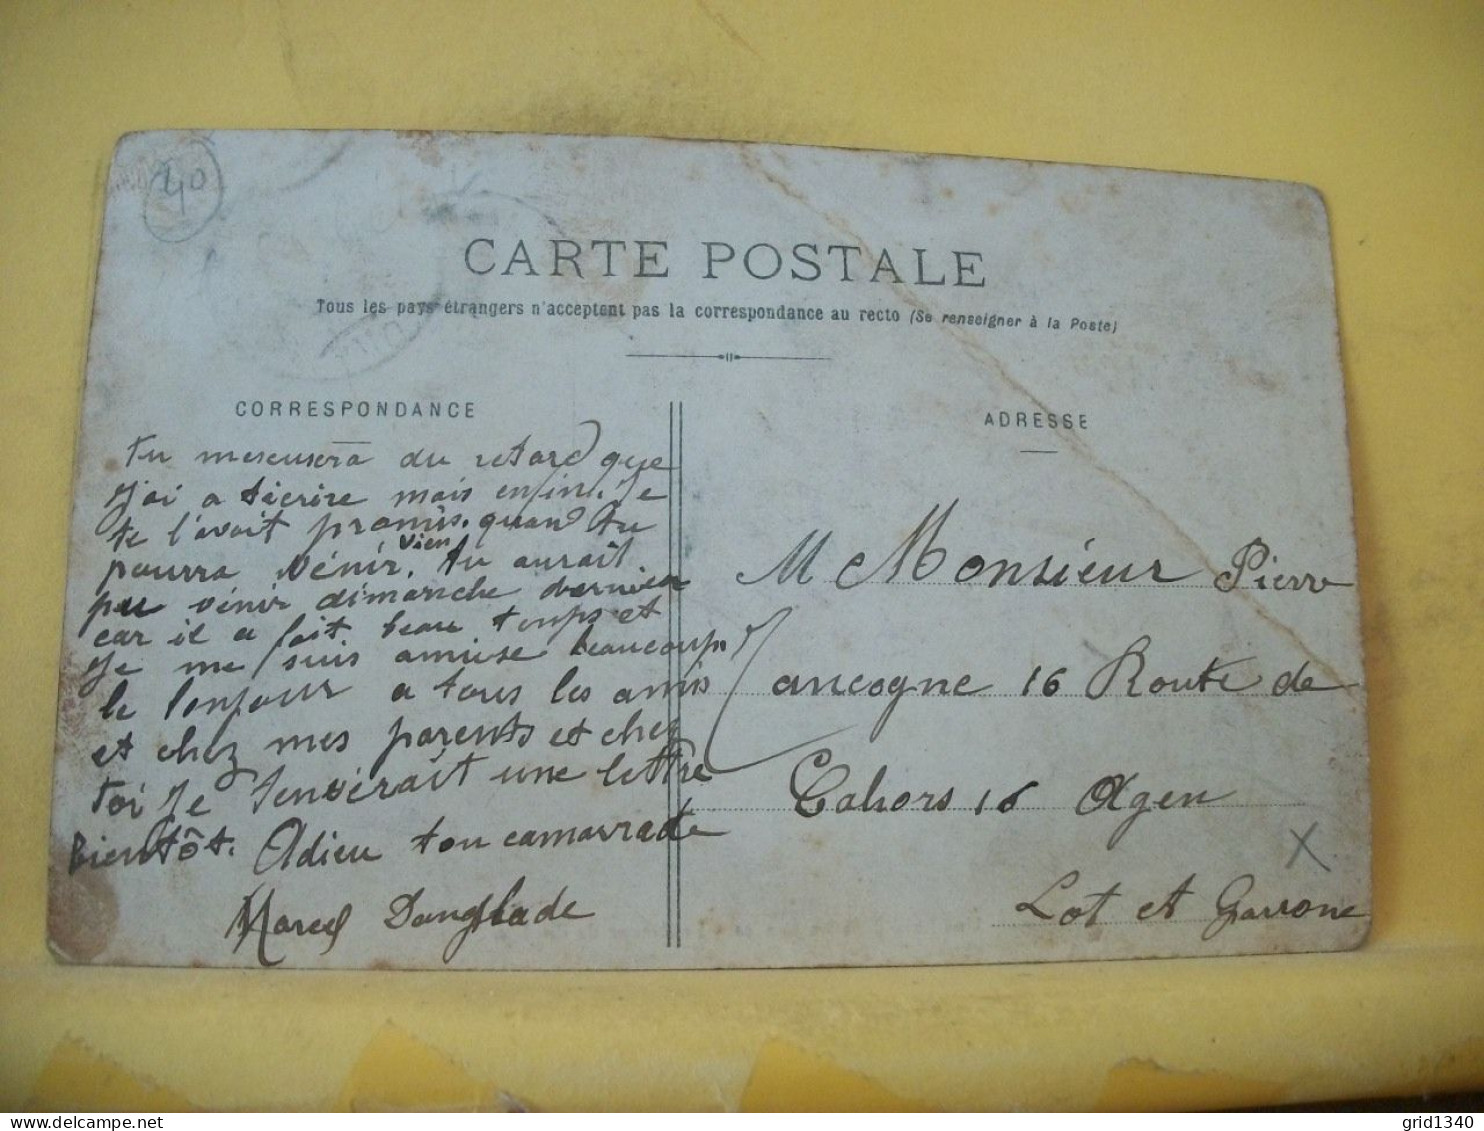 40
CARTE POSTALE
Tous les pays étrangers n'acceptent pas la correspondance au recto (Se renseigner à la Poste)
CORRESPONDANCE
tu mescusera du retard que
J'ai a técrire mais enfin. Je
te l'avait promis. quand tu
pourra vénir. vien tu aurait
pu vénir dimanche dernier
car il a fait beau temps et
Je me suis amusé beaucoup
le bonjour a tous les amis
et chez mes parents et chez
toi Je tenvérait une lettre
Bientôt. Adieu ton camarrade
Marcel Danglade
ADRESSE
M Monsiéur Pierre
Cancogne 16 Route de
Cahors 16 Agen
X
Lot et Garrone
grid1340